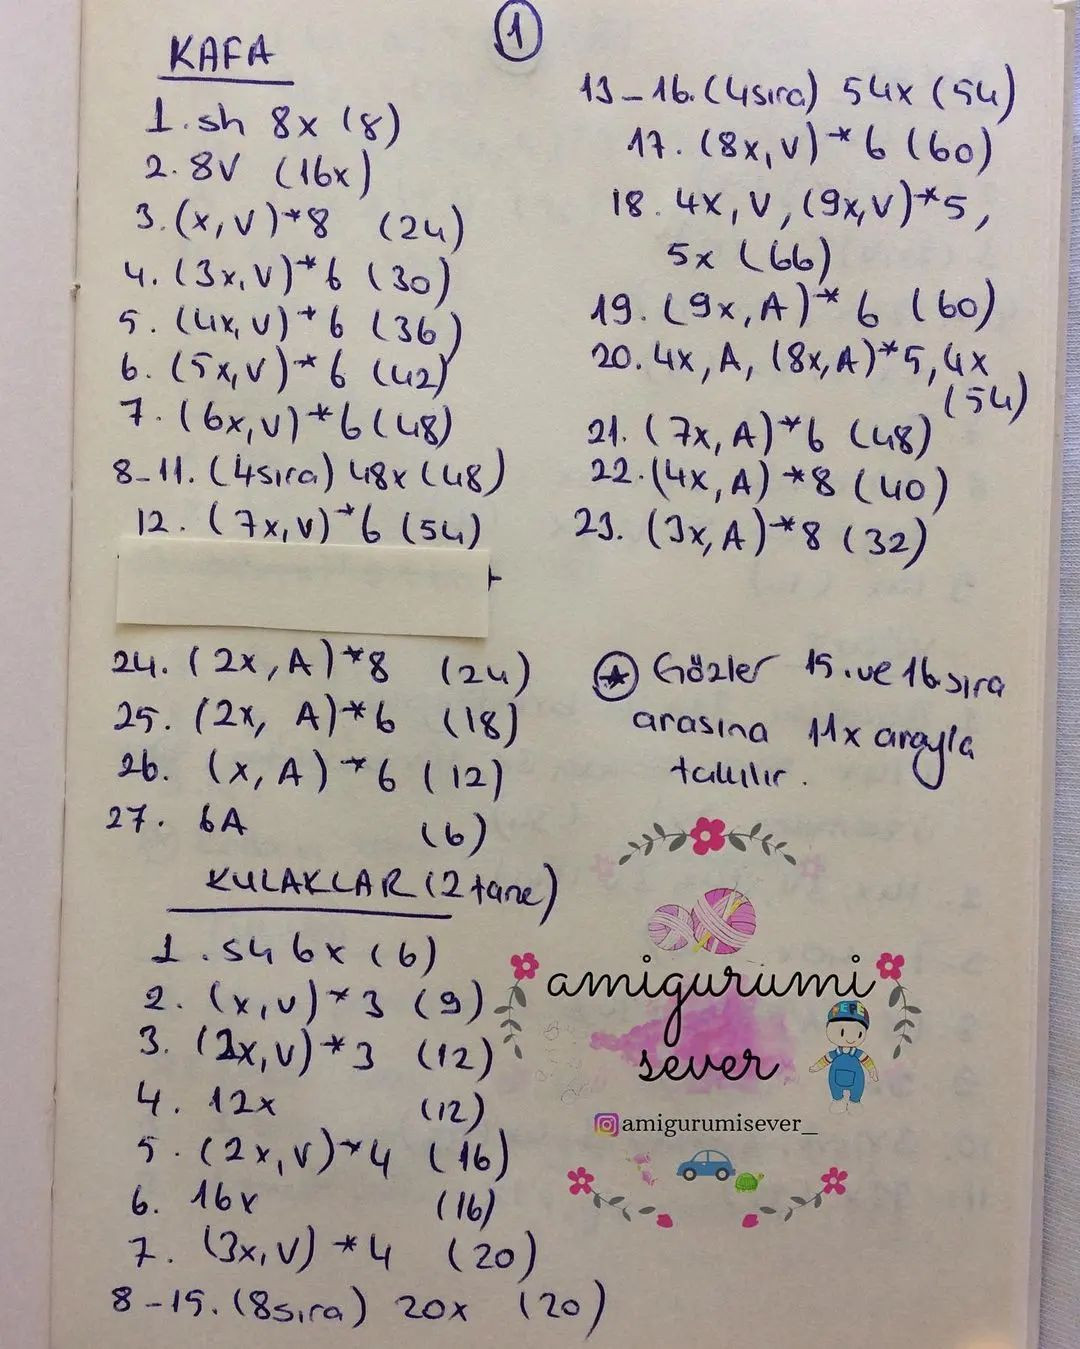 1
KAFA
1. sh 8x (8)
2. 8V (16x)
3. (x, V)*8 (24)
4. (3x, V)*6 (30)
5. (4x, V)*6 (36)
6. (5x, V)*6 (42)
7. (6x, V)*6 (48)
8-11. (4sıra) 48x (48)
12. (7x, V)*6 (54)
13-16. (4sıra) 54x (54)
17. (8x, V)*6 (60)
18. 4x, V, (9x, V)*5,
5x (66)
19. (9x, A)*6 (60)
20. 4x, A, (8x, A)*5, 4x
(54)
21. (7x, A)*6 (48)
22. (4x, A)*8 (40)
23. (3x, A)*8 (32)
24. (2x, A)*8 (24)
25. (2x, A)*6 (18)
26. (x, A)*6 (12)
27. 6A (6)
Gözler 15. ve 16 sıra
arasına 11x arayla
takılır.
KULAKLAR (2 tane)
1. sh 6x (6)
2. (x, V)*3 (9)
3. (2x, V)*3 (12)
4. 12x (12)
5. (2x, V)*4 (16)
6. 16x (16)
7. (3x, V)*4 (20)
8-15. (8sıra) 20x (20)
amigurumi
sever
amigurumisever_